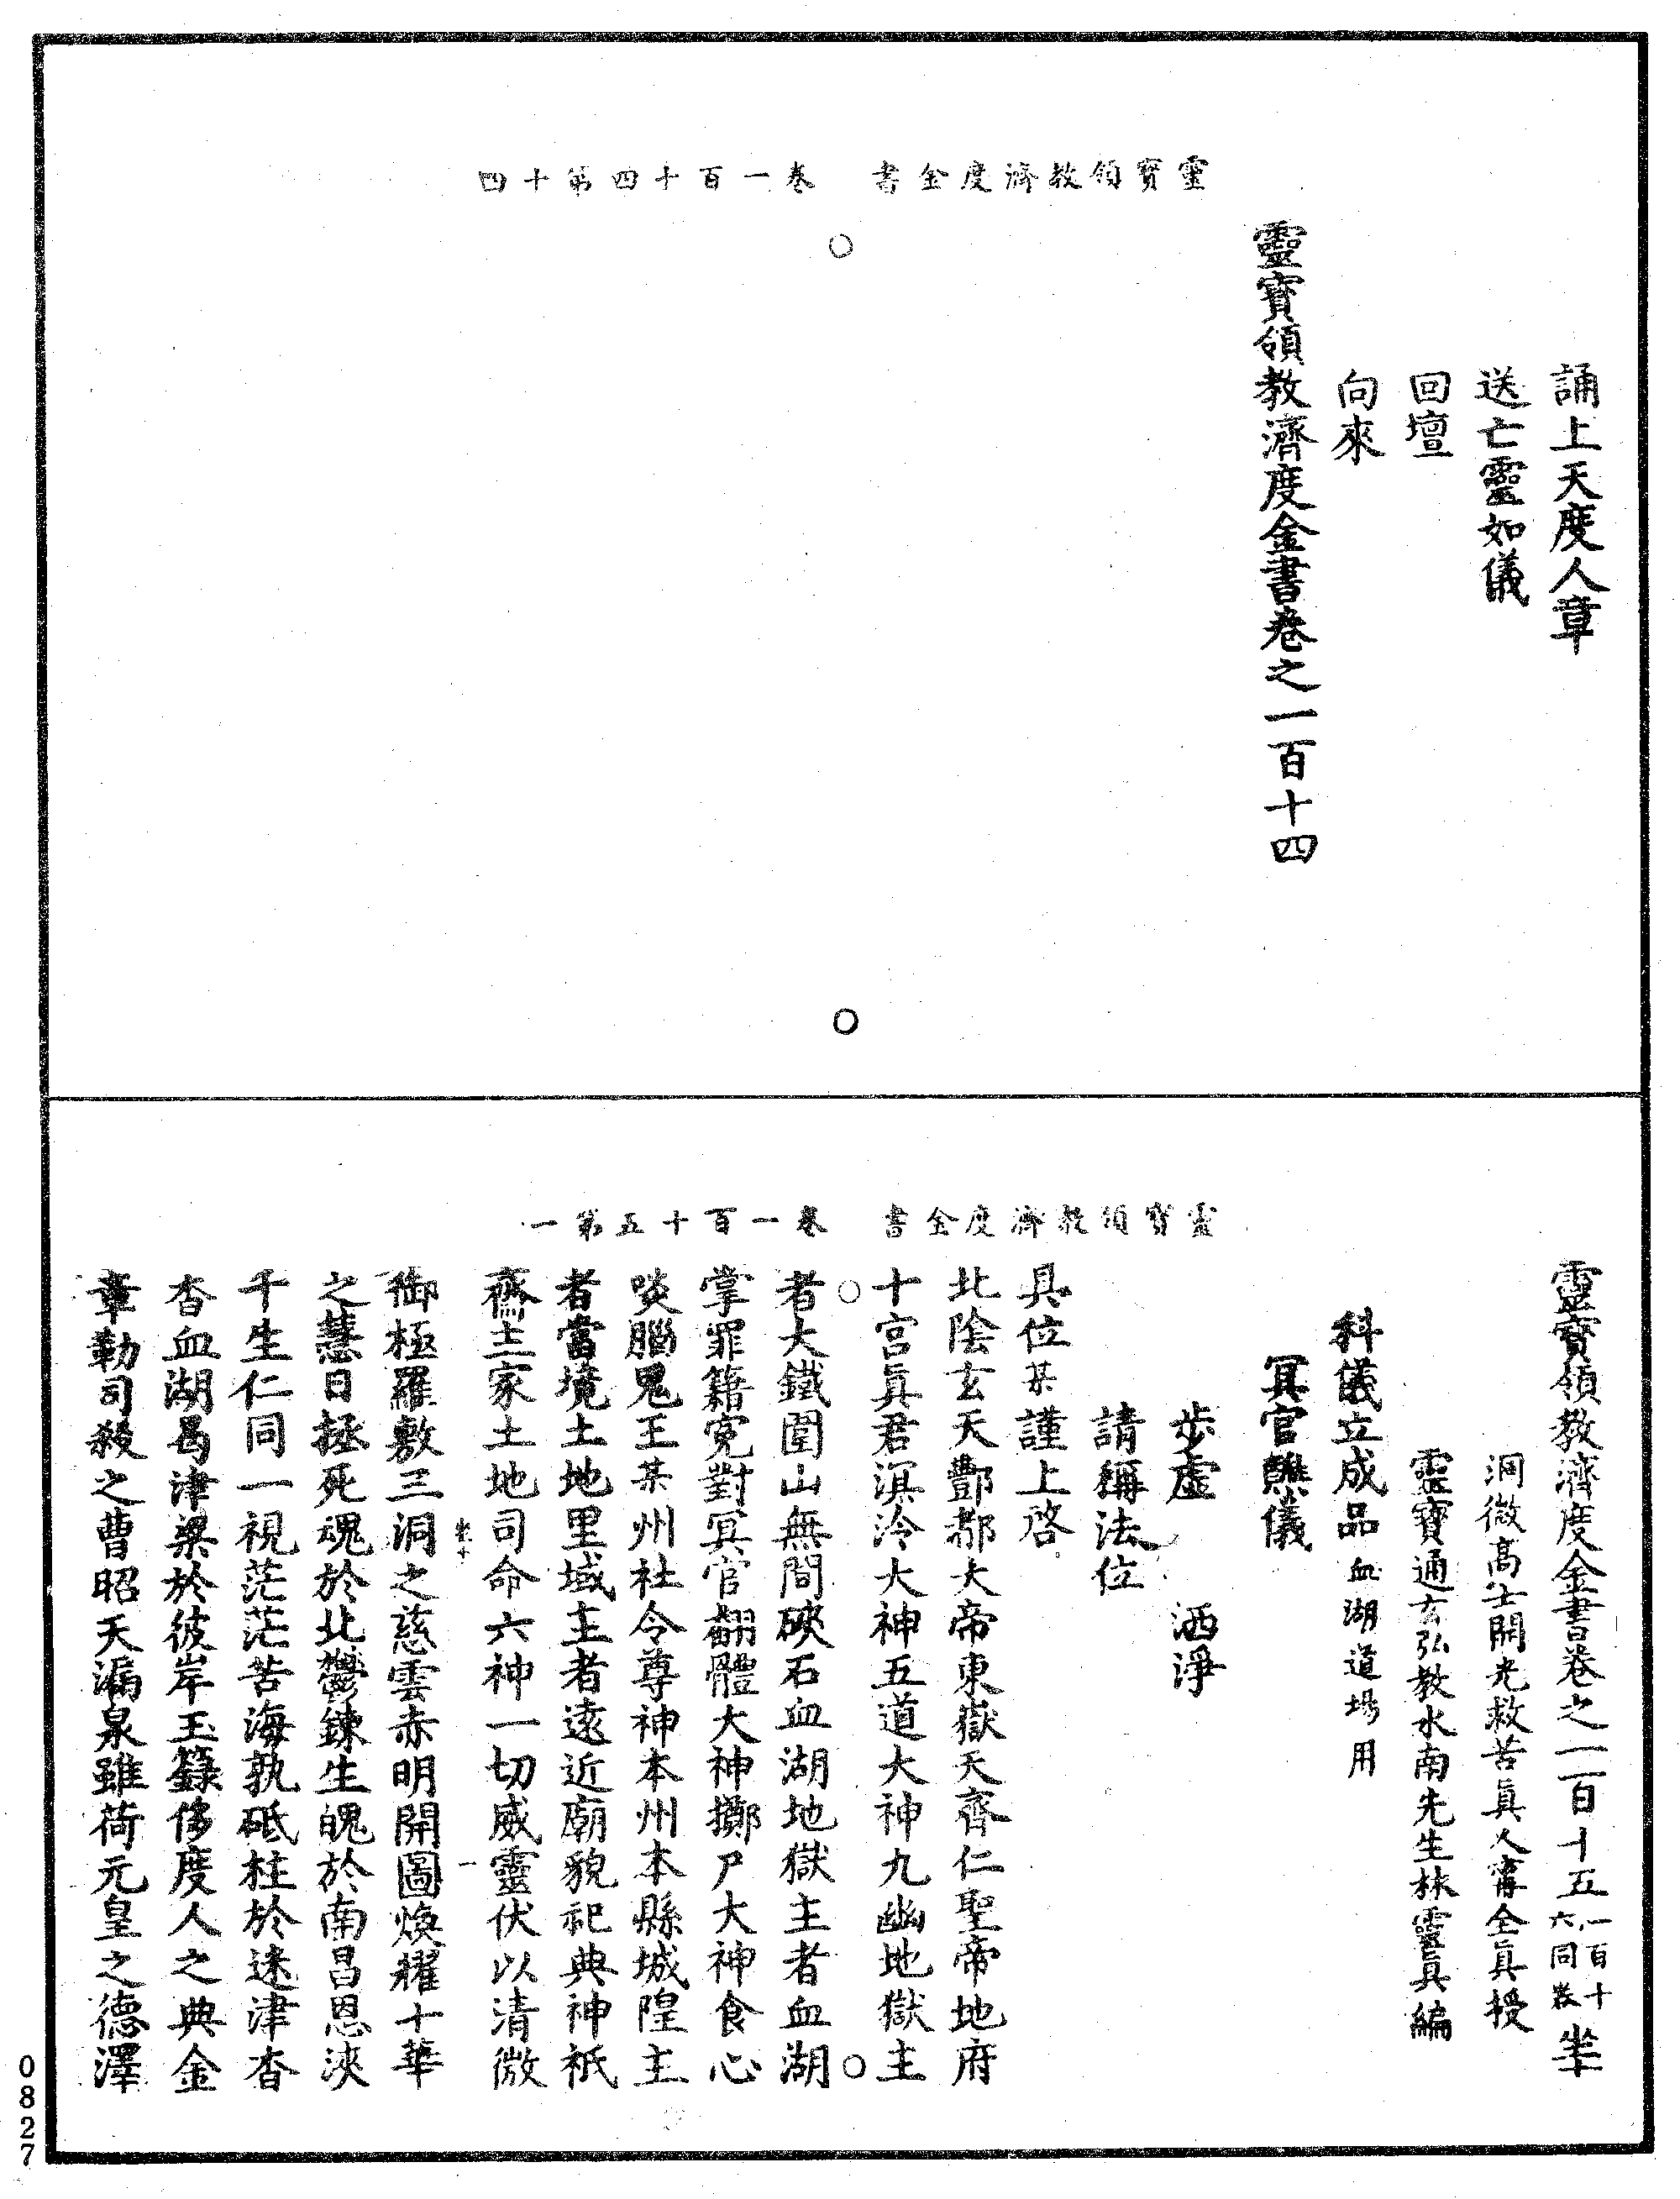 靈寶領教濟度金書　卷一百十四第十四
誦上天度人章
送亡靈如儀
回壇
向來
靈寶領教濟度金書卷之一百十四
靈寶領教濟度金書　卷一百十五第一
靈寶領教濟度金書卷之一百十五 一百十六同裝
洞微高士開光救苦真人甯全真授
靈寶通玄弘教水南先生林靈真編
科儀立成品 血湖道場用
冥官醮儀
步虛　洒淨
請稱法位
具位某謹上啓
北陰玄天酆都大帝東嶽天齊仁聖帝地府
十宮真君溟泠大神五道大神九幽地獄主
者大鐵圍山無間硤石血湖地獄主者血湖
掌罪籍寃對冥官翻體大神擲尸大神食心
啖腦鬼王某州社令尊神本州本縣城隍主
者當境土地里域主者遠近廟貌祀典神祇
齋主家土地司命六神一切威靈伏以清微
御極羅敷三洞之慈雲赤明開圖煥耀十華
之慧日拯死魂於北鬱鍊生魄於南昌恩浹
千生仁同一視茫茫苦海孰砥柱於迷津杳
杳血湖曷津梁於彼岸玉籙侈度人之典金
章勒司殺之曹昭天漏泉雖荷元皇之德澤
0827